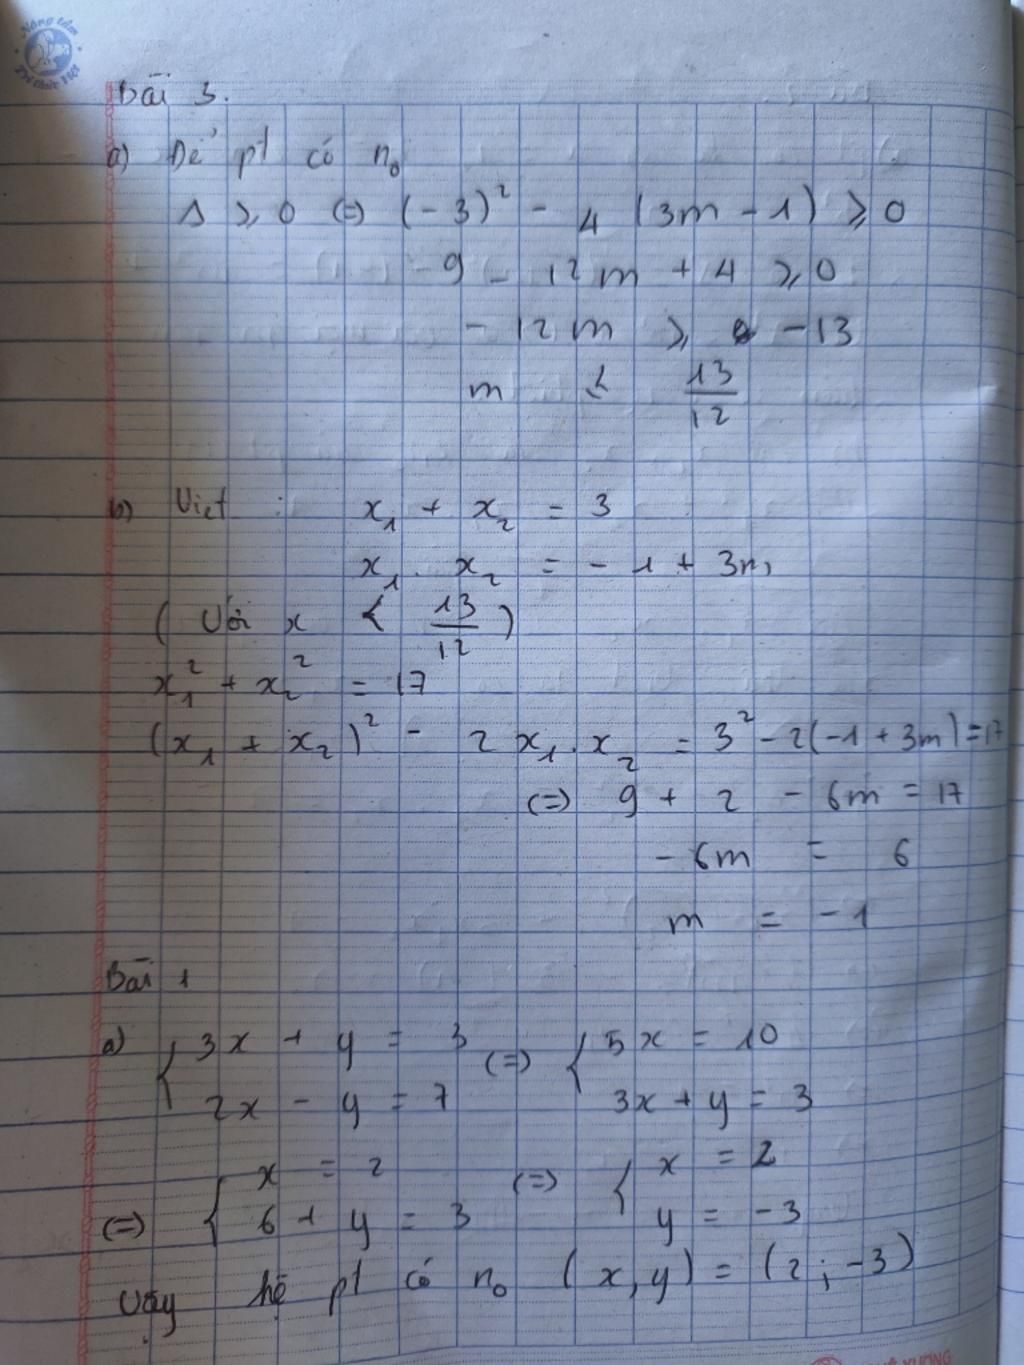 Nâng tầm
Trí thức Việt
Bài 3.
a) Để pt có n₀
Δ ≥ 0 (=) (-3)² - 4 (3m - 1) ≥ 0
9 - 12m + 4 ≥ 0
- 12m ≥ -13
m ≤ 13/12
b) Viet : x₁ + x₂ = 3
x₁ . x₂ = - 1 + 3m
( Với x < 13/12 )
x₁² + x₂² = 17
(x₁ + x₂)² - 2x₁.x₂ = 3² - 2(-1 + 3m) = 17
(=) 9 + 2 - 6m = 17
- 6m = 6
m = -1
Bài 1
a) { 3x + y = 3 (=) { 5x = 10
2x - y = 7 3x + y = 3
(=) { x = 2 (=) { x = 2
6 + y = 3 y = -3
Vậy hệ pt có n₀ (x,y) = (2; -3)